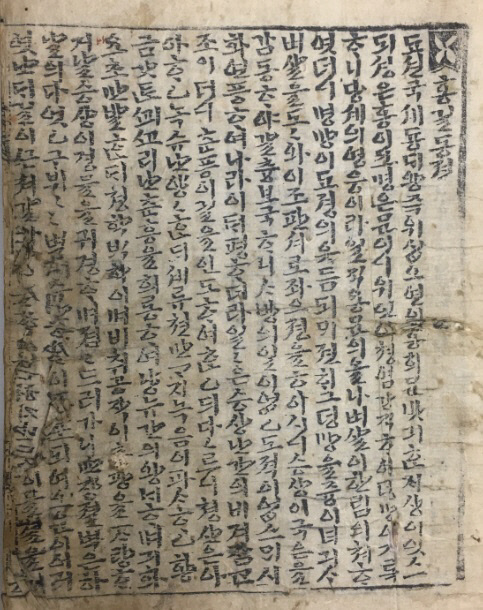 홍길동젼
됴션국 셰동ᄃᆡ왕 즉위 십오연의 홍희문 밧긔 ᄒᆞᆫ ᄌᆡ상이 잇스
되 셩은 홍이요 명은 문이니 위인이 쳥염강직ᄒᆞ여 덕망이 거록
ᄒᆞ니 당셰의 영웅이라 일직 용문의 올나 벼살이 할림의 쳐ᄒᆞ
엿더니 명망이 됴졍의 읏듬 되ᄆᆡ 젼하 그 덕망을 승이 녀긔ᄉᆞ
벼살을 도도와 이조판셔로 좌의졍을 ᄒᆞ이시니 승상이 국은을
감동ᄒᆞ야 갈츙보국ᄒᆞ니 사방의 일이 업고 도젹이 업스ᄆᆡ 시
화연풍ᄒᆞ여 나라이 ᄐᆡ평ᄒᆞ더라 일일은 승상 난간의 비겨 잠간
조이더니 한풍이 길을 인도ᄒᆞ여 ᄒᆞᆫ 고ᄃᆡ 다다르니 쳥산은 아
아ᄒᆞ고 녹슈난 양양ᄒᆞᆫᄃᆡ 세류 쳔만 가지 녹음이 파사ᄒᆞ고 황
금 갓튼 ᄭᅬᄭᅩ리난 춘흥을 희롱ᄒᆞ여 양류간의 왕ᄂᆡᄒᆞ며 긔화
요초 만발ᄒᆞᆫᄃᆡ 쳥학 ᄇᆡᆨ학이며 비취 공작이 춘광을 자랑ᄒᆞ
거날 승상이 경물을 귀경ᄒᆞ며 졈졈 드러가니 만장졀벽은 하
날의 다엇고 구뷔구뷔 벽계슈난 골골이 폭포되여 오운이 어려
엿난ᄃᆡ 길이 ᄭᅳᆫ쳐 갈 바